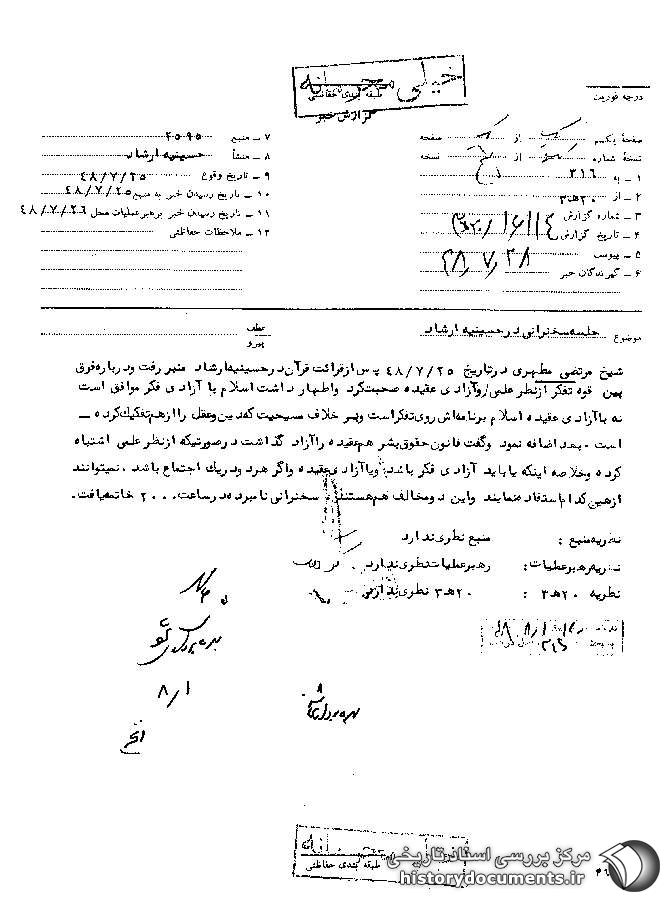 خیلی محرمانه
طبقه بندی حفاظتی
گزارش خبر
درجه فوریت
صفحهٔ یکم از یک صفحه
نسخهٔ شماره از نسخه
۱ ـ به ۳۱۶
۲ ـ از ۲۰هـ۳
۳ ـ شماره گزارش
۴ ـ تاریخ گزارش ۴۸/۷/۲۸
۵ ـ پیوست
۶ ـ گیرندگان خبر
۷ ـ منبع ۲۵۹۵
۸ ـ منشأ حسینیه ارشاد
۹ ـ تاریخ وقوع ۴۸/۷/۲۵
۱۰ ـ تاریخ رسیدن خبر به منبع ۴۸/۷/۲۵
۱۱ ـ تاریخ رسیدن خبر برهبر عملیات محل ۴۸/۷/۲۶
۱۲ ـ ملاحظات حفاظتی
موضوع جلسه سخنرانی در حسینیه ارشاد
عطف
پیرو
شیخ مرتضی مطهری در تاریخ ۴۸/۷/۲۵ پس از قرائت قرآن در حسینیه ارشاد منبر رفت و درباره فرق
بین قوه تفکر از نظر علمی و آزادی عقیده صحبت کرد و اظهار داشت اسلام با آزادی فکر موافق است
نه با آزادی عقیده اسلام برنامه‌اش روی تفکر است و بر خلاف مسیحیت که دین و عقل را از هم تفکیک کرده ـ
است . بعد اضافه نمود و گفت قانون حقوق بشر هم عقیده را آزاد گذاشت در صورتیکه از نظر علمی اشتباه
کرده و خلاصه اینکه یا باید آزادی فکر باشد و یا آزادی عقیده و اگر هر دو در یک اجتماع باشد . نمیتوانند
از هین کدام استفاده نمایند و این دو مخالف هم هستند . سخنرانی نامبرده در ساعت ۲۰۰۰ خاتمه یافت .
نظریه منبع : منبع نظری ندارد
نظریه رهبر عملیات : رهبر عملیات نظری ندارد .
نظریه ۲۰هـ۳ : ۲۰هـ۳ نظری ندارد
۸/۱
بهره برداری شد
طبقه بندی حفاظتی
مرکز بررسی اسناد تاریخی
historydocuments.ir